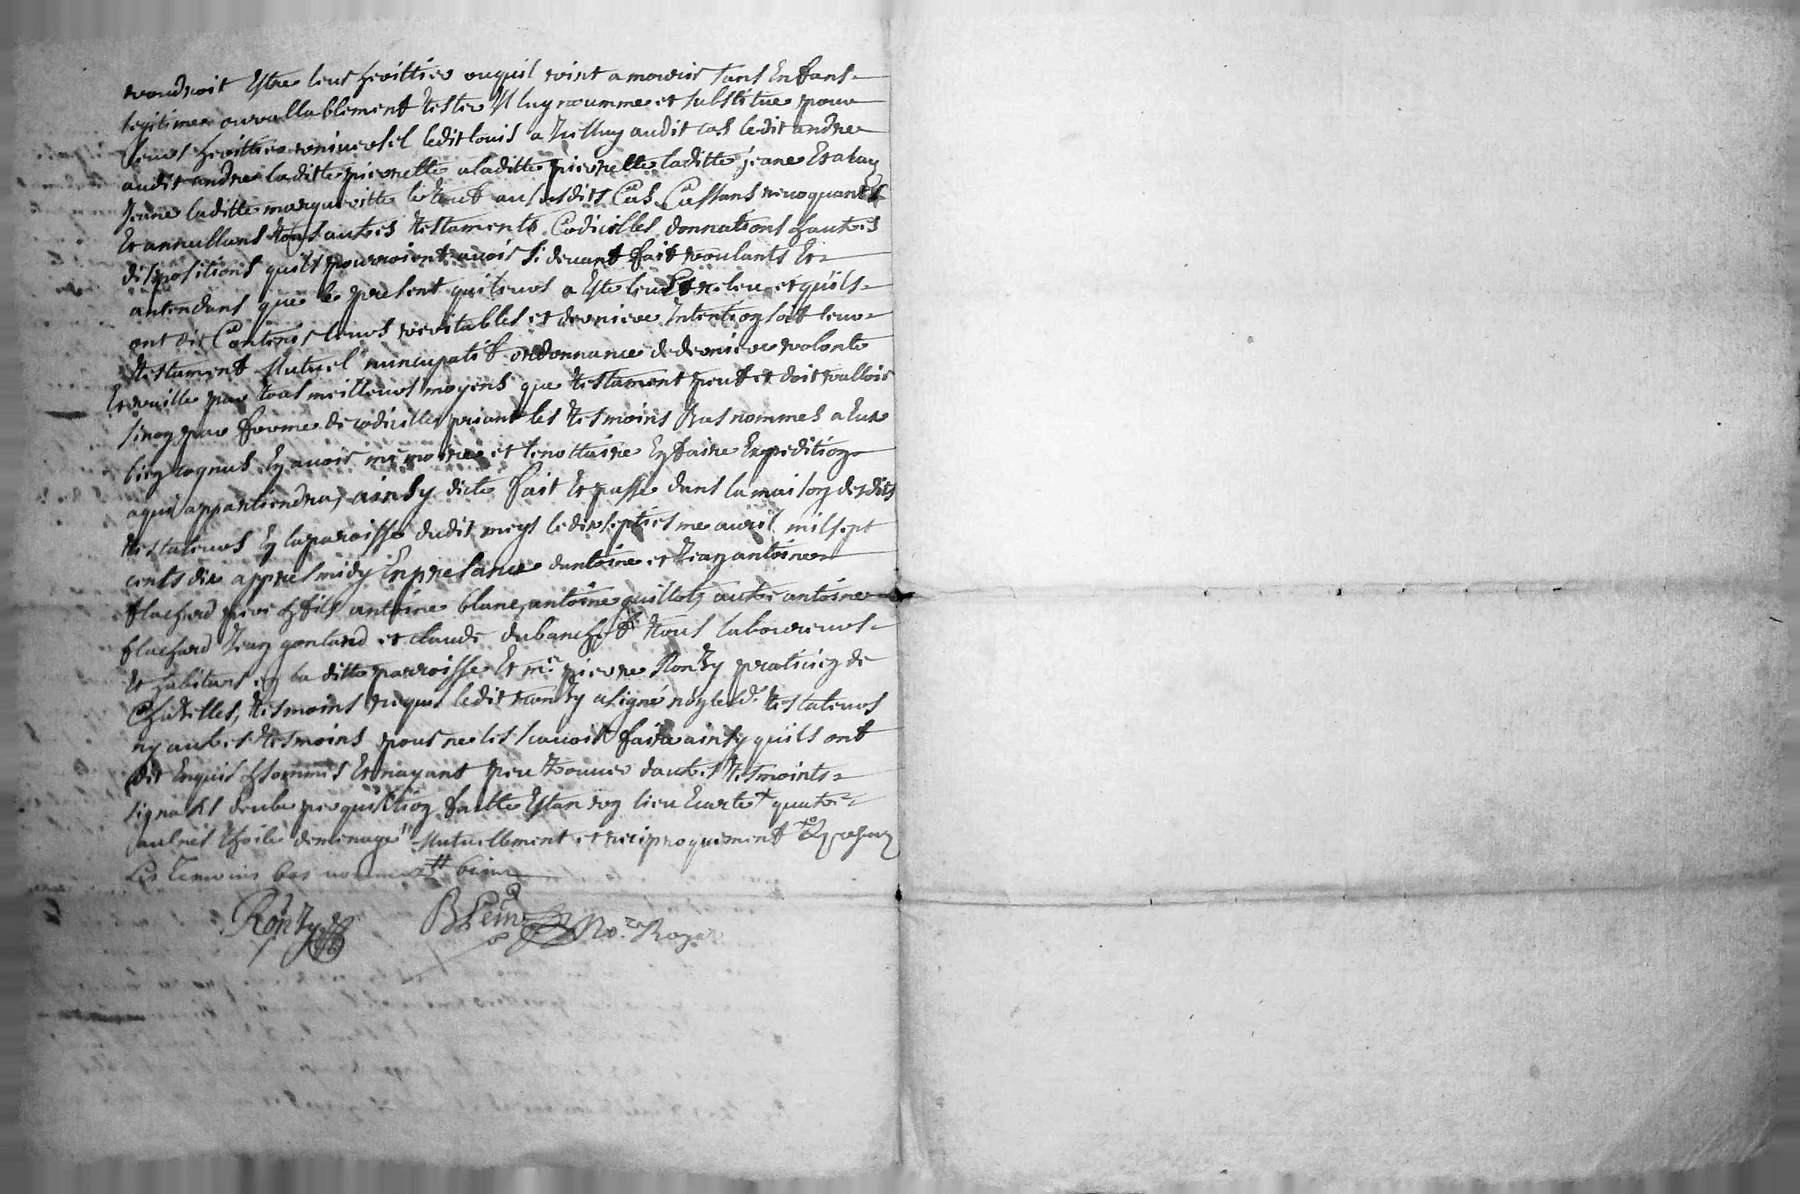 voudroit Estre leur herittier ou quil vint a mourir sans Enfans
legitimes ou vallablement tester Il luy nomme et substitue pour
leur herittier universel ledit louis a Icelluy audit cas ledit andre
audit andre laditte pierrette a laditte pierrette laditte jeane Et a lad
Jeane laditte margueritte le tout au susdits Cas Cassans revoquants
Et annullans tous autres testaments Codicilles donnations & autres
dispositions quils pourroient avoir si devant fait voulants Et
antendans que le present qui leurs a Este leu & releu et quils
ont dit Contenir leurs veritables et derniere Intention soit leur
testament Mutuel nuncupatif ordonnance de derniere volonte
Et vaille par tous meilleurs moyens que testament peut et doit valloir
sinon par forme de codicille priant les tesmoins bas nommes a Eux
bien cognus En avoir memoire et le nottaire En faire Expedition
a qui appartiendra, ainsy dicte fait Et passe dans la maison desdits
testateurs En la paroisse dudit meys le dix septiesme avril mil sept
cents dix appres midy En presance dantoine et Jean antoine
flachard pere & fils antoine blanc, antoine guillot, autre antoine
flachard Jean gonland et claude dubanchet tous laboureurs
Et habitans en la ditte parroisse Et me. pierre Ronzy praticien de
Chazelles, tesmoins requis ledit ronzy a signé non lesd. testateurs
ny autres tesmoins pour ne les scavoir faire ainsy quils ont
dit Enquis & sommes Et nayant peu trouver dautres tesmoints
signants deube perquisition faitte Estan en lieu Ecarte + quatre
aulnes thoile de menage Mutuellement et reciproquement
Les temoins bas nommes
Ronzy BLein No.re Royal